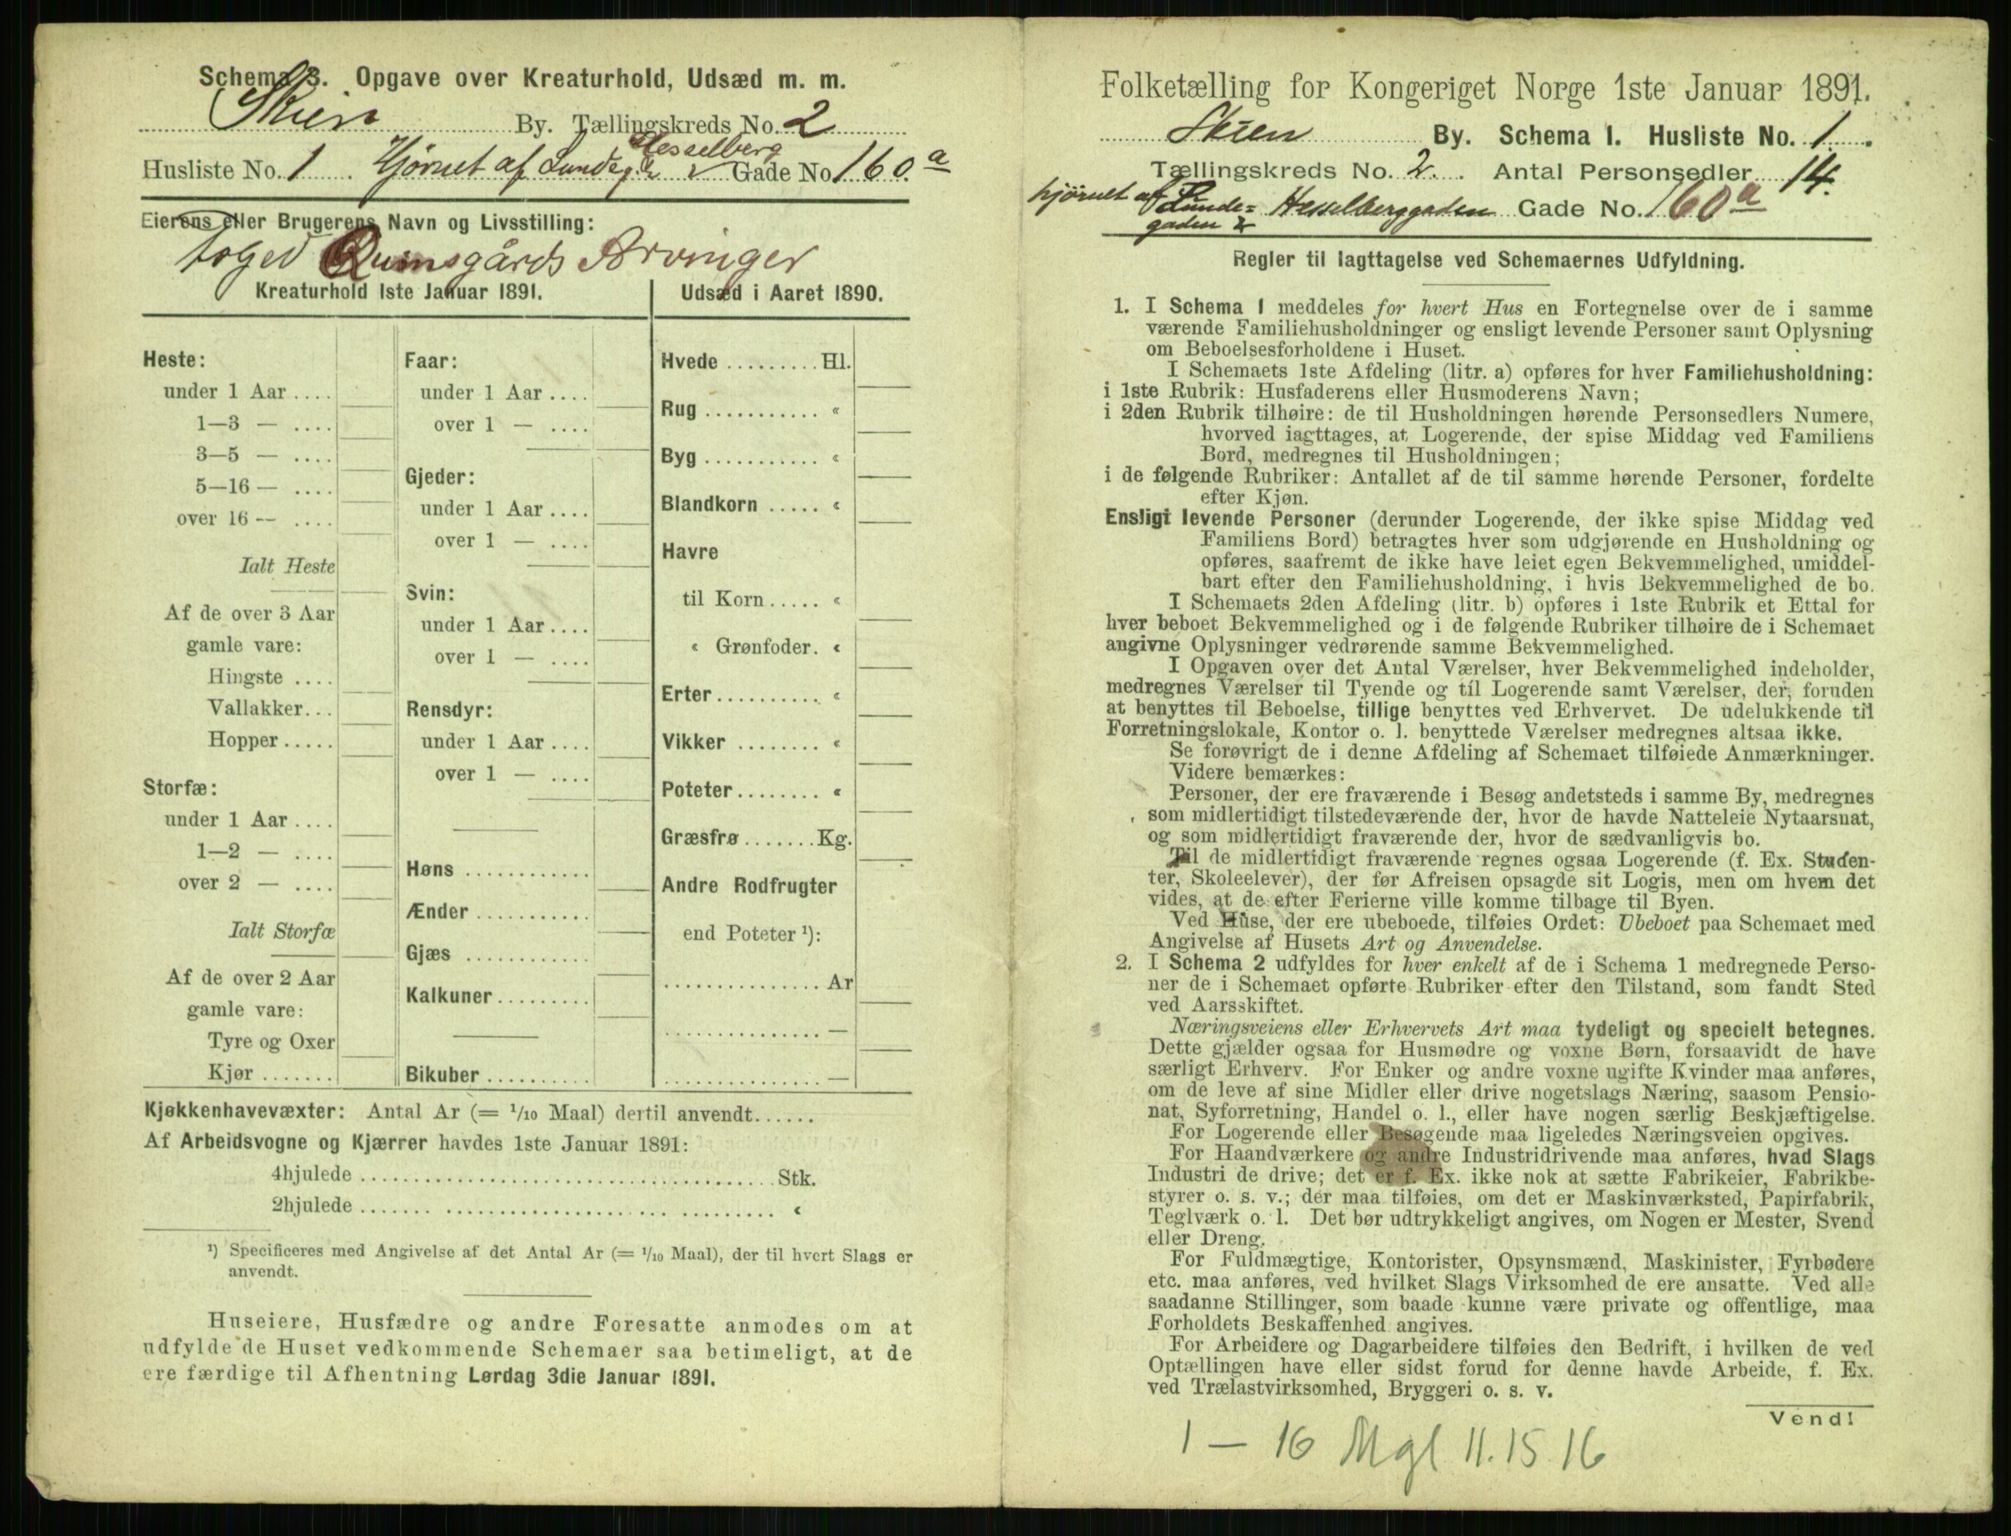 Schema 3. Opgave over Kreaturhold, Udsæd m. m.
Skien By. Tællingskreds No. 2
Husliste No. 1 Hjørnet af Lundeg. & Hesselberg Gade No. 160 a
Eierens eller Brugerens Navn og Livsstilling:
Foged Arvinger
Kreaturhold 1ste Januar 1891.
Heste:
under 1 Aar ....
1—3 — ....
3—5 — ....
5—16 — ....
over 16 — ....
Ialt Heste
Af de over 3 Aar
gamle vare:
Hingste ....
Vallakker...
Hopper.....
Storfæ:
under 1 Aar ....
1—2 — ....
over 2 — ....
Ialt Storfæ
Af de over 2 Aar
gamle vare:
Tyre og Oxer
Kjør .......
Faar:
under 1 Aar ....
over 1 — ....
Gjeder:
under 1 Aar ....
over 1 — ....
Svin:
under 1 Aar ....
over 1 — ....
Rensdyr:
under 1 Aar ....
over 1 — ....
Høns ............
Ænder ...........
Gjæs ............
Kalkuner.........
Bikuber..........
Udsæd i Aaret 1890.
Hvede ......... Hl.
Rug ........... «
Byg ........... «
Blandkorn ..... «
Havre
til Korn ..... «
« Grønfoder. «
Erter.......... «
Vikker ........ «
Poteter........ «
Græsfrø ....... Kg.
Andre Rodfrugter
end Poteter ¹):
............... Ar
............... —
............... —
Kjøkkenhavevæxter: Antal Ar (= 1/10 Maal) dertil anvendt......
Af Arbeidsvogne og Kjærrer havdes 1ste Januar 1891:
4hjulede ........................................ Stk.
2hjulede ........................................ «
¹) Specificeres med Angivelse af det Antal Ar (= 1/10 Maal), der til hvert Slags er
anvendt.
Huseiere, Husfædre og andre Foresatte anmodes om at
udfylde de Huset vedkommende Schemaer saa betimeligt, at de
ere færdige til Afhentning Lørdag 3die Januar 1891.
Folketælling for Kongeriget Norge 1ste Januar 1891.
Skien By. Schema 1. Husliste No. 1
Tællingskreds No. 2. Antal Personsedler 14.
hjørnet af Lunde-
gaden & Hesselberggaden Gade No. 160 a
Regler til Iagttagelse ved Schemaernes Udfyldning.
1. I Schema 1 meddeles for hvert Hus en Fortegnelse over de i samme
værende Familiehusholdninger og ensligt levende Personer samt Oplysning
om Beboelsesforholdene i Huset.
I Schemaets 1ste Afdeling (litr. a) opføres for hver Familiehusholdning:
i 1ste Rubrik: Husfaderens eller Husmoderens Navn;
i 2den Rubrik tilhøire: de til Husholdningen hørende Personsedlers Numere,
hvorved iagttages, at Logerende, der spise Middag ved Familiens
Bord, medregnes til Husholdningen;
i de følgende Rubriker: Antallet af de til samme hørende Personer, fordelte
efter Kjøn.
Ensligt levende Personer (derunder Logerende, der ikke spise Middag ved
Familiens Bord) betragtes hver som udgjørende en Husholdning og
opføres, saafremt de ikke have leiet egen Bekvemmelighed, umiddel-
bart efter den Familiehusholdning, i hvis Bekvemmelighed de bo.
I Schemaets 2den Afdeling (litr. b) opføres i 1ste Rubrik et Ettal for
hver beboet Bekvemmelighed og i de følgende Rubriker tilhøire de i Schemaet
angivne Oplysninger vedrørende samme Bekvemmelighed.
I Opgaven over det Antal Værelser, hver Bekvemmelighed indeholder,
medregnes Værelser til Tyende og til Logerende samt Værelser, der, foruden
at benyttes til Beboelse, tillige benyttes ved Erhvervet. De udelukkende til
Forretningslokale, Kontor o. l. benyttede Værelser medregnes altsaa ikke.
Se forøvrigt de i denne Afdeling af Schemaet tilføiede Anmærkninger.
Videre bemærkes:
Personer, der ere fraværende i Besøg andetsteds i samme By, medregnes
som midlertidigt tilstedeværende der, hvor de havde Natteleie Nytaarsnat,
og som midlertidigt fraværende der, hvor de sædvanligvis bo.
Til de midlertidigt fraværende regnes ogsaa Logerende (f. Ex. Studen-
ter, Skoleelever), der før Afreisen opsagde sit Logis, men om hvem det
vides, at de efter Ferierne ville komme tilbage til Byen.
Ved Huse, der ere ubeboede, tilføies Ordet: Ubeboet paa Schemaet med
Angivelse af Husets Art og Anvendelse.
2. I Schema 2 udfyldes for hver enkelt af de i Schema 1 medregnede Perso-
ner de i Schemaet opførte Rubriker efter den Tilstand, som fandt Sted
ved Aarsskiftet.
Næringsveiens eller Erhvervets Art maa tydeligt og specielt betegnes.
Dette gjælder ogsaa for Husmødre og voxne Børn, forsaavidt de have
særligt Erhverv. For Enker og andre voxne ugifte Kvinder maa anføres,
om de leve af sine Midler eller drive nogetslags Næring, saasom Pensio-
nat, Syforretning, Handel o. l., eller have nogen særlig Beskjæftigelse.
For Logerende eller Besøgende maa ligeledes Næringsveien opgives.
For Haandværkere og andre Industridrivende maa anføres, hvad Slags
Industri de drive; det er f. Ex. ikke nok at sætte Fabrikeier, Fabrikbe-
styrer o. s. v.; der maa tilføies, om det er Maskinværksted, Papirfabrik,
Teglværk o. l. Det bør udtrykkeligt angives, om Nogen er Mester, Svend
eller Dreng.
For Fuldmægtige, Kontorister, Opsynsmænd, Maskinister, Fyrbødere
etc. maa anføres, ved hvilket Slags Virksomhed de ere ansatte. Ved alle
saadanne Stillinger, som baade kunne være private og offentlige, maa
Forholdets Beskaffenhed angives.
For Arbeidere og Dagarbeidere tilføies den Bedrift, i hvilken de ved
Optællingen have eller sidst forud for denne havde Arbeide, f. Ex.
ved Trælastvirksomhed, Bryggeri o. s. v.
Vend!
1 — 16 Mgl 11. 15 16